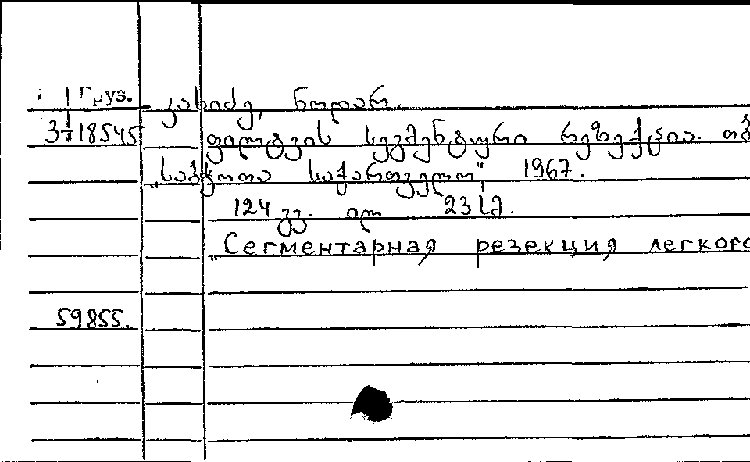 Груз. კახიძე, ნოდარ.
3718545 ფილტვის სეგმენტური რეზექცია. თბ
„საბჭოთა საქართველო", 1967.
124 გვ. ილ 23 სმ.
„Сегментарная резекция легкого
59855.